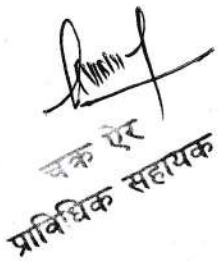 चक्र ऐर
प्राविधिक सहायक